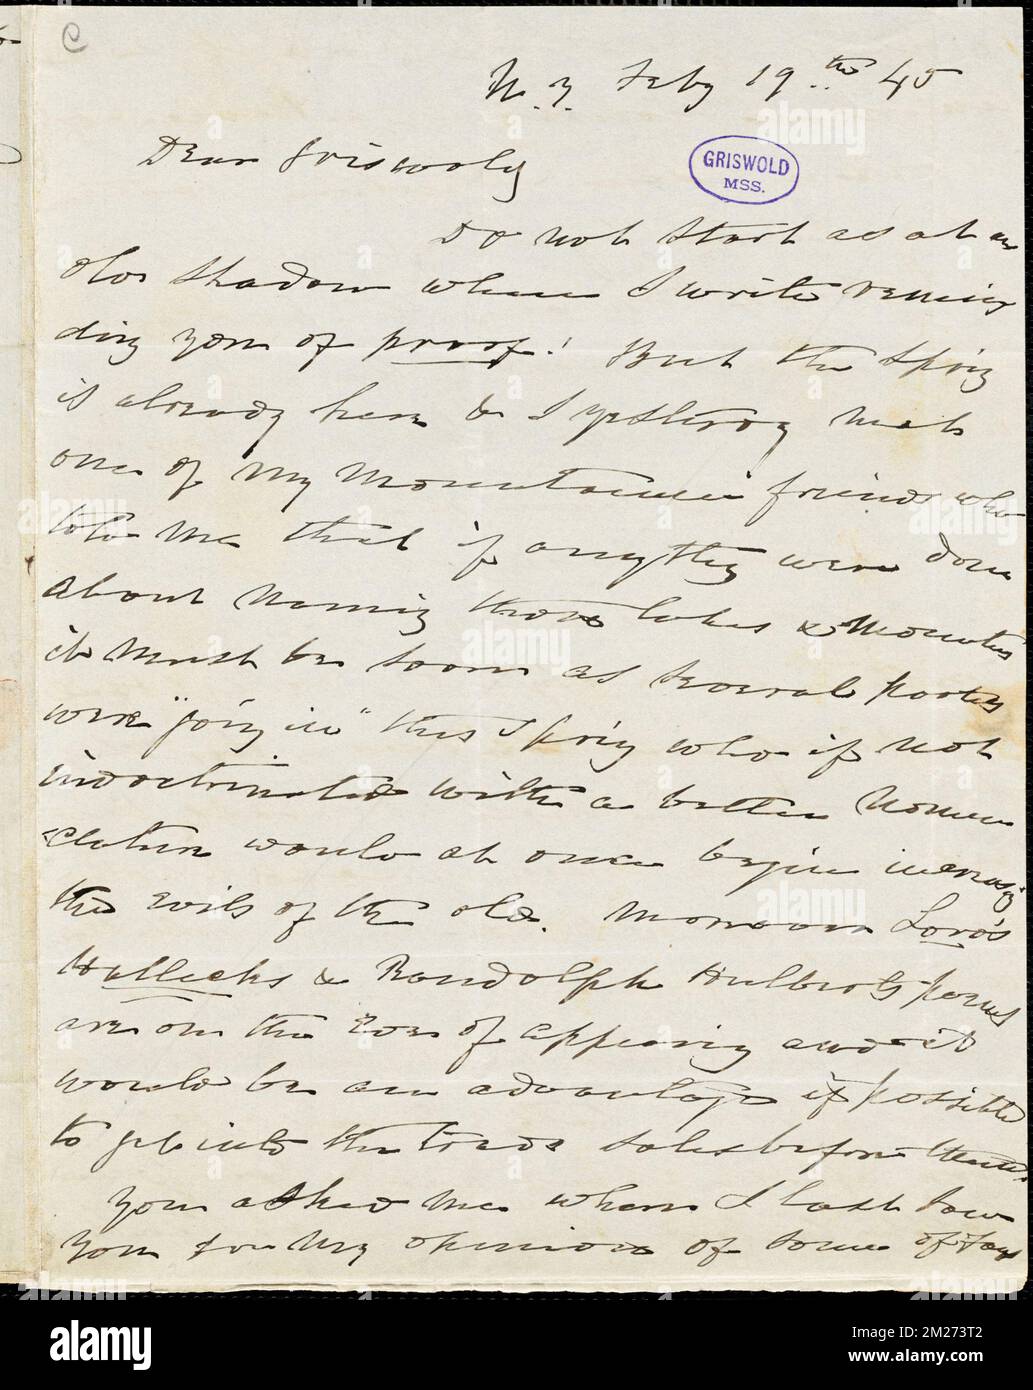 C
N. Y. Feby 19th 45
GRISWOLD
MSS.
Dear Griswold
Do not start as at an
old shadow when I write remin
ding you of proof! But the Spring
is already here & I yesterday met
one of my Mountaineer friends who
told me that if anything were done
about naming those lakes & mountns
it must be soon as several parties
were "going in" this Spring who if not
indoctrinated with a better Nomen
clature would at once begin increasing
the evils of the old. Moreover Lord's
Hallecks & Randolph Hulberts poems
are on the Eve of appearing and it
would be an advantage if possible
to get into the trade sales before them.
You asked me when I last saw
you for my opinion of some of
alamy
Image ID: 2M273T2
www.alamy.com